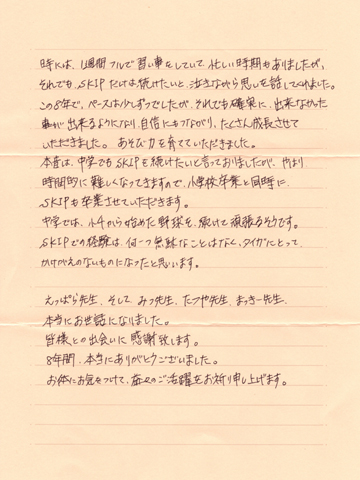 時には、1週間フルで習い事をしていて忙しい時期もありましたが、
それでも、SKIPだけは続けたいと、泣きながら思いを話してくれました。
この8年で、ペースは少しずつでしたが、それでも確実に、出来なかった
事が出来るようになり、自信にもつながり、たくさん成長させて
いただきました。あそび力を育てていただきました。
本音は、中学でもSKIPを続けたいと言っておりましたが、やはり
時間的に難しくなってきますので、小学校卒業と同時に、
SKIPも卒業させていただきます。
中学では、小4から始めた野球を、続けて頑張るそうです。
SKIPでの経験は、何一つ無駄なことはなく、タイガにとって、
かけがえのないものになったと思います。
えっぱら先生、そして みっ先生、たつや先生、まっきー先生、
本当にお世話になりました。
皆様との出会いに感謝致します。
8年間、本当にありがとうございました。
お体にお気をつけて、益々のご活躍をお祈り申し上げます。